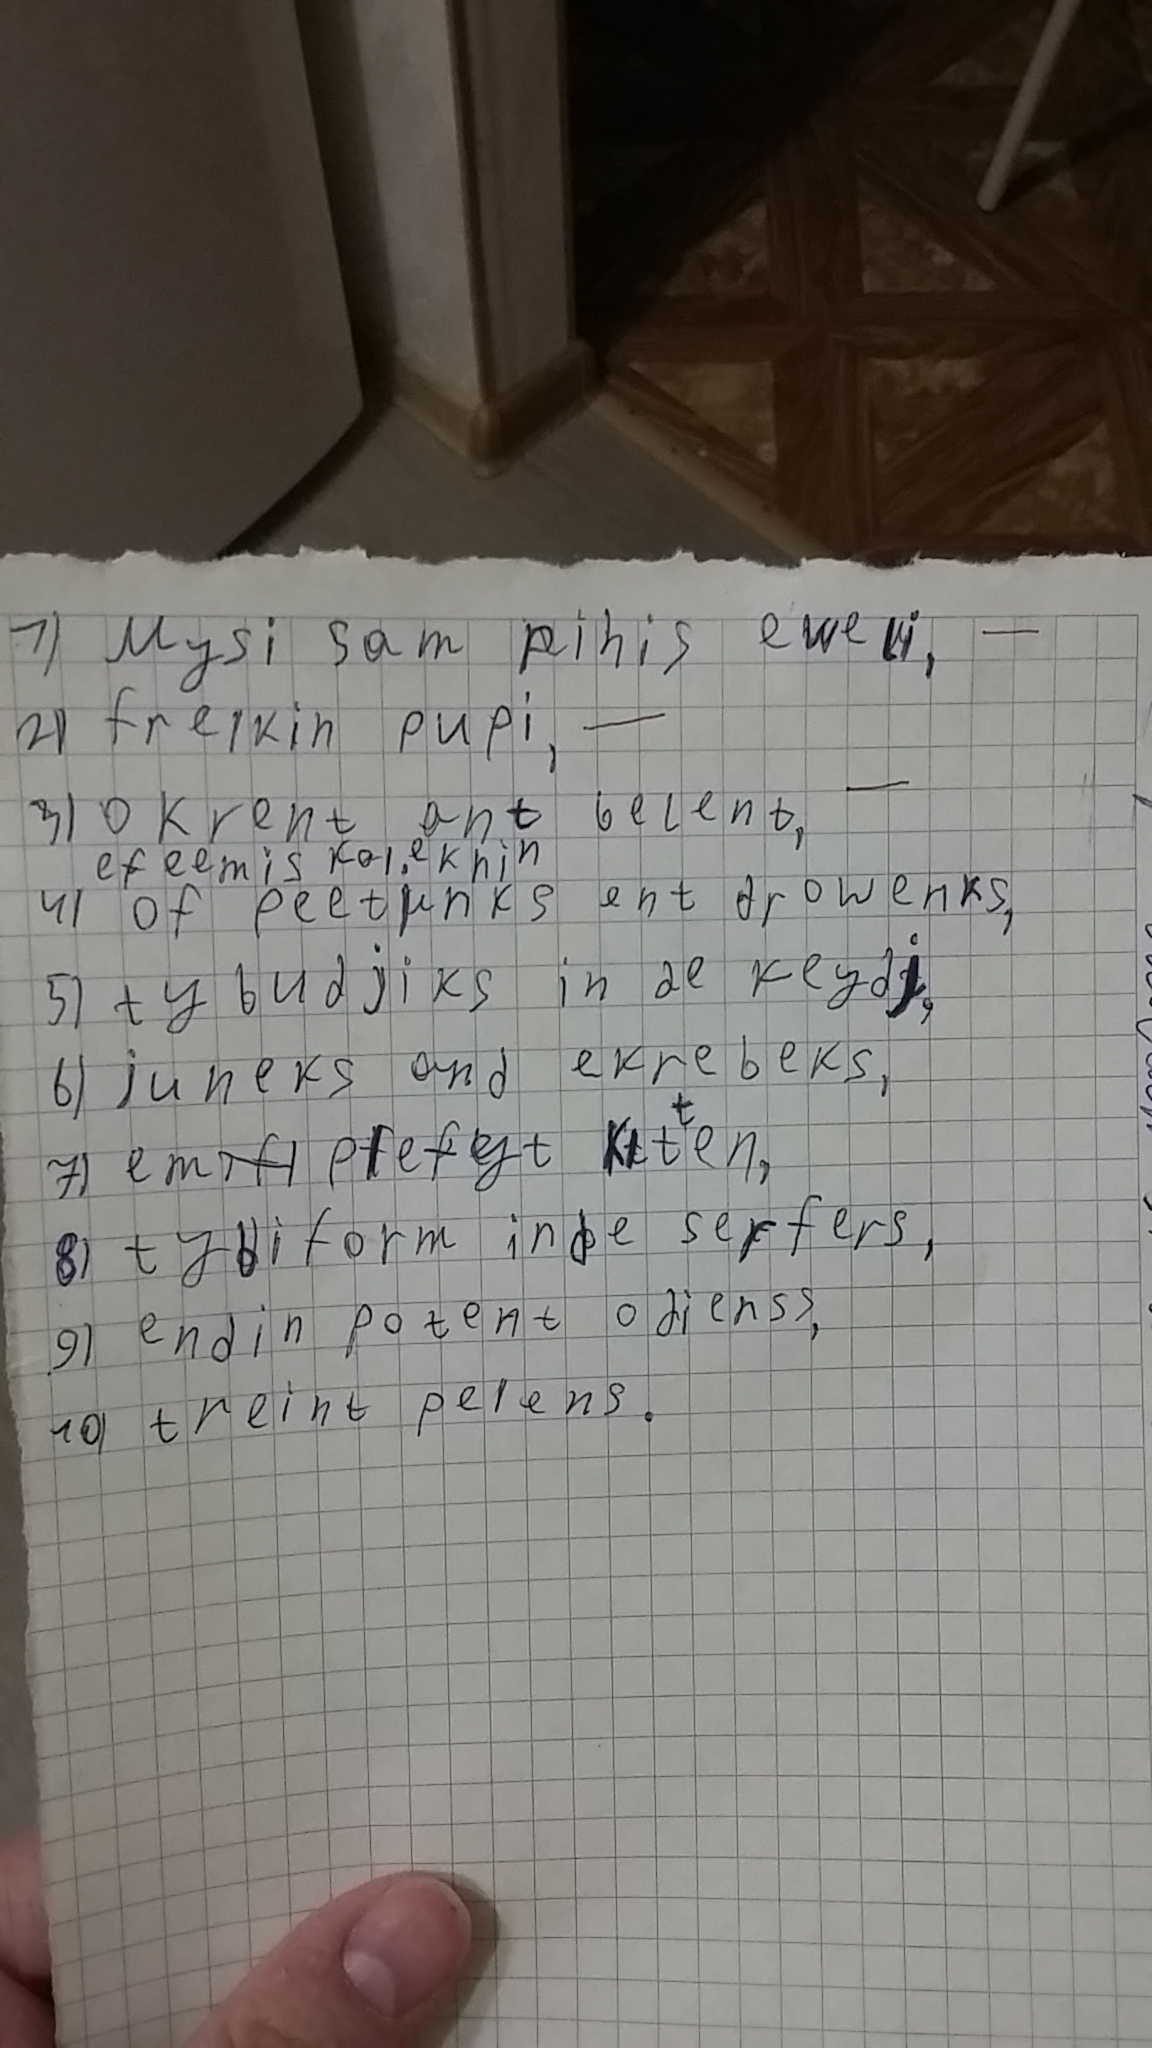 1) Mysi sam pihis eweui, —
2) freikin pupi, —
3) okrent ant belent, —
efeemis kol.eknin
4) of peetunks ent drowenks,
5) ty budjiks in de keydj,
6) juneks and ekrebeks,
7) em plefeyt kitten,
8) ty biform inde serfers,
9) endin potent odienss,
10) treint pelens.